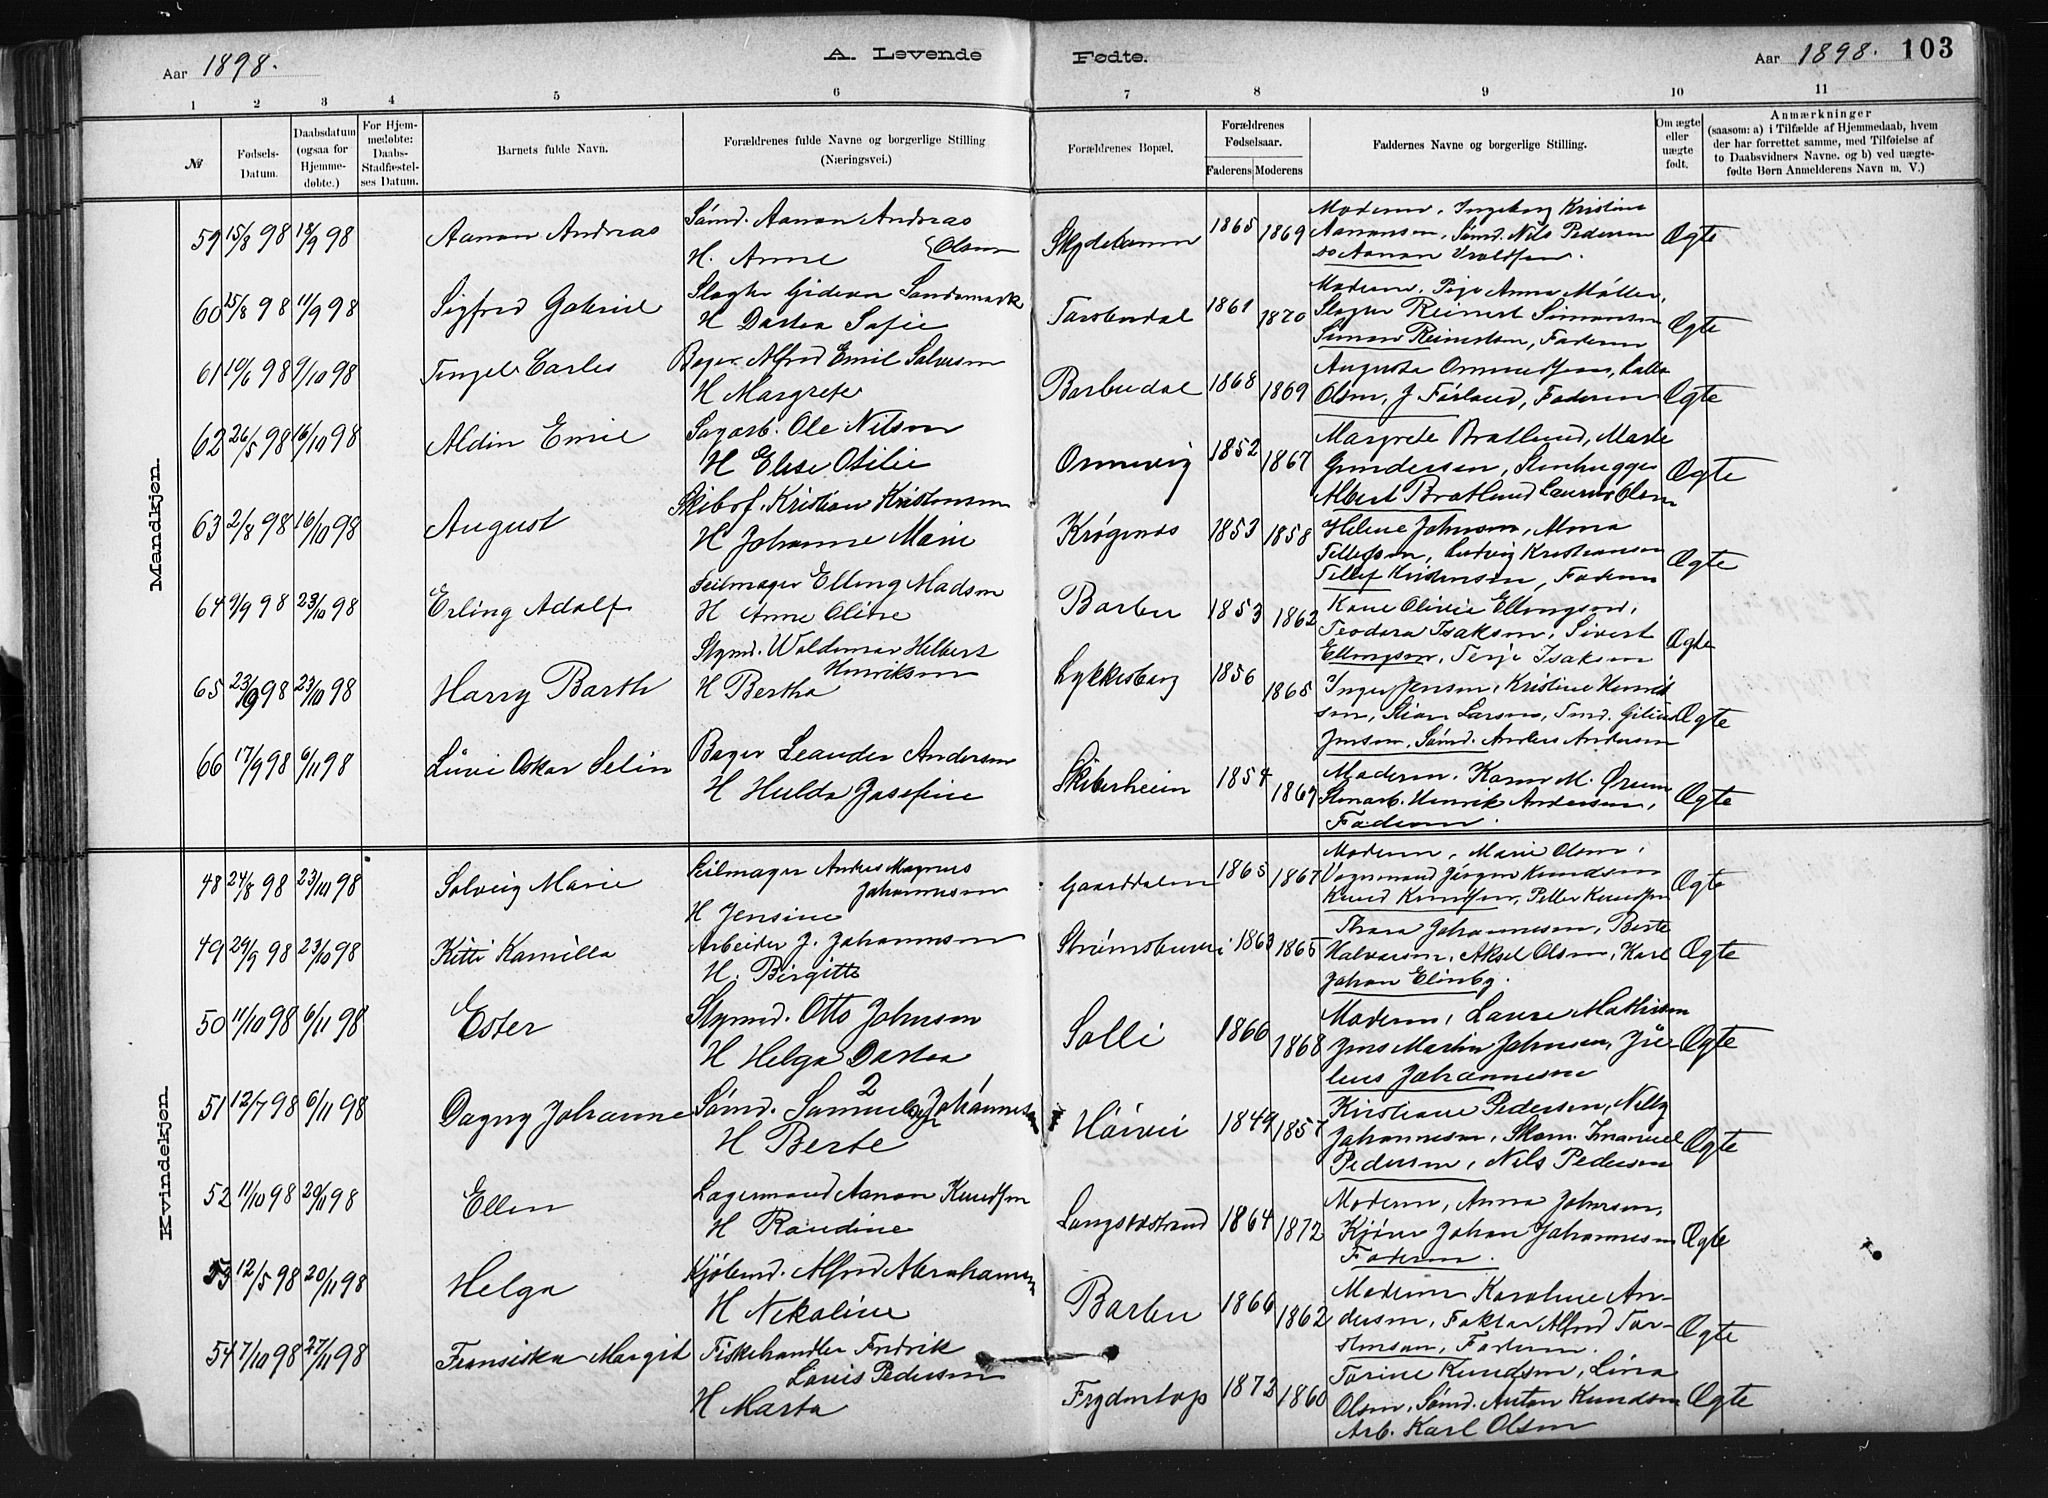 Aar 1898.
A. Levende Fødte.
Aar 1898. 103
1 2 3 4 5 6 7 8 9 10 11
№
Fødsels-Datum.
Daabsdatum (ogsaa for Hjemmedøbte.)
For Hjemmedøbte: Daabs-Stadfæstelses Datum.
Barnets fulde Navn.
Forældrenes fulde Navne og borgerlige Stilling (Næringsvei.)
Forældrenes Bopæl.
Forældrenes Fødselsaar.
Faderens Moderens
Faddernes Navne og borgerlige Stilling.
Om ægte eller uægte født.
Anmærkninger
(saasom: a) i Tilfælde af Hjemmedaab, hvem
der har forrettet samme, med Tilføielse af
to Daabsvidners Navne. og b) ved uægte-
fødte Børn Anmelderens Navn m. V.)
Mandkjøn.
59 15/8 98 18/9 98 Aanon Andreas
Sömd. Aanon Andreas
Olsen
H. Anne
1865 1869
Moderen, Ingeborg Kristine
Aanonsen, Sömd. Nils Pedersen
Aanon
Ægte
60 15/8 98 11/9 98 Sigfred Gabriel
Slagter Gideon Sandsmark
H Dortea Sofie
1861 1870
Moderen, Pige Anna Möller,
Slagter Reinert Simonsen
Simon Reinertsen, Faderen
Ægte
61 10/6 98 9/10 98 Tingel Carles
Bager Alfred Emil Salvesen
H Margrete
Barbudal 1868 1869
Augusta Ommundsen,
Olsen, J Förland, Faderen
Ægte
62 26/5 98 16/10 98 Aldin Emil
Sagarb. Ole Nilsen
H Elise Otilie
Ormevig 1852 1867
Margrete Bratlund, Marte
Gundersen, Stenhugger
Albert Bratlund Laurits Olsen
Ægte
63 2/8 98 16/10 98 August
Skibsf. Kristian Kristensen
H Johanne Marie
Krøgenes 1853 1858
Helene Johnsen, Alma
Tellefsen, Ludvig Kristiansen
Tellef Kristensen, Faderen
Ægte
64 9/9 98 23/10 98 Erling Adolf
Seilmager Elling Madsen
H Anne Oline
Barbu 1853 1862
Kone Olivie Ellingsen,
Teodora Isaksen, Sivert
Ellingsen, Terje Isaksen
Ægte
65 23/9 98 23/10 98 Harry Barth
Stymd. Waldemar Helbert
Henriksen
H Bertha
Lykkesborg 1856 1865
Inger Jensen, Kristine Henrik
sen, Larsen, Tmd.
Jensen, Sömd. Anders Andersen
Ægte
66 17/9 98 6/11 98 Oskar Selin
Bager Leander Andersen
H Hulda Josefine
Skiberheim 1854 1867
Moderen, Karen M.
Stenarb. Henrik Andersen,
Faderen.
Ægte
Kvindekjøn.
48 24/8 98 23/10 98 Solveig Marie
Seilmager Anders Magnus
Johannesen
H Jensine
Gaarddalen 1865 1867
Moderen, Marie Olsen,
Vognmand Jörgen Knudsen
Knud Knudsen, Peller Knudsen
Ægte
49 29/9 98 23/10 98 Kitti Kamilla
Arbeider J. Johannesen
H. Birgitte
1863 1865
Thora Johannesen, Berte
Halvorsen, Aksel Olsen, Karl
Johan
Ægte
50 11/10 98 6/11 98 Ester
Stymd. Otto Johnsen
H Helga Dortea
Solli 1866 1868
Moderen, Laura Mathisen
Jens Martin Johnsen, Jú-
lius Johannesen
Ægte
51 12/7 98 6/11 98 Dagny Johanne
2
Sömd. Samuel Johannes
H Berte
1849 1857
Kirstiane Pedersen, Nelly
Johannesen, Skom. Imanuel
Pedersen, Nils Pedersen
Ægte
52 11/10 98 20/11 98 Ellen
Lagermand Aanon Knudsen
H Randine
Langsæstrand 1864 1872
Moderen, Anna Johnsen,
Johan Johannesen
Faderen.
Ægte
53 12/5 98 20/11 98 Helga
Kjöbmd. Alfred Abrahamsen
H Nikoline
Barbu 1866 1862
Moderen Karoline An-
dersen, Faktor Alfred Tor-
stensen, Faderen.
Ægte
54 7/10 98 27/11 98 Fransiska Margit
Fiskehandler Fredrik
Louis Pedersen
H Marta
Frydentop 1872 1860
Torine Knudsen, Lina
Olsen, Sömd. Anton Knudsen
Arb. Karl Olsen
Ægte